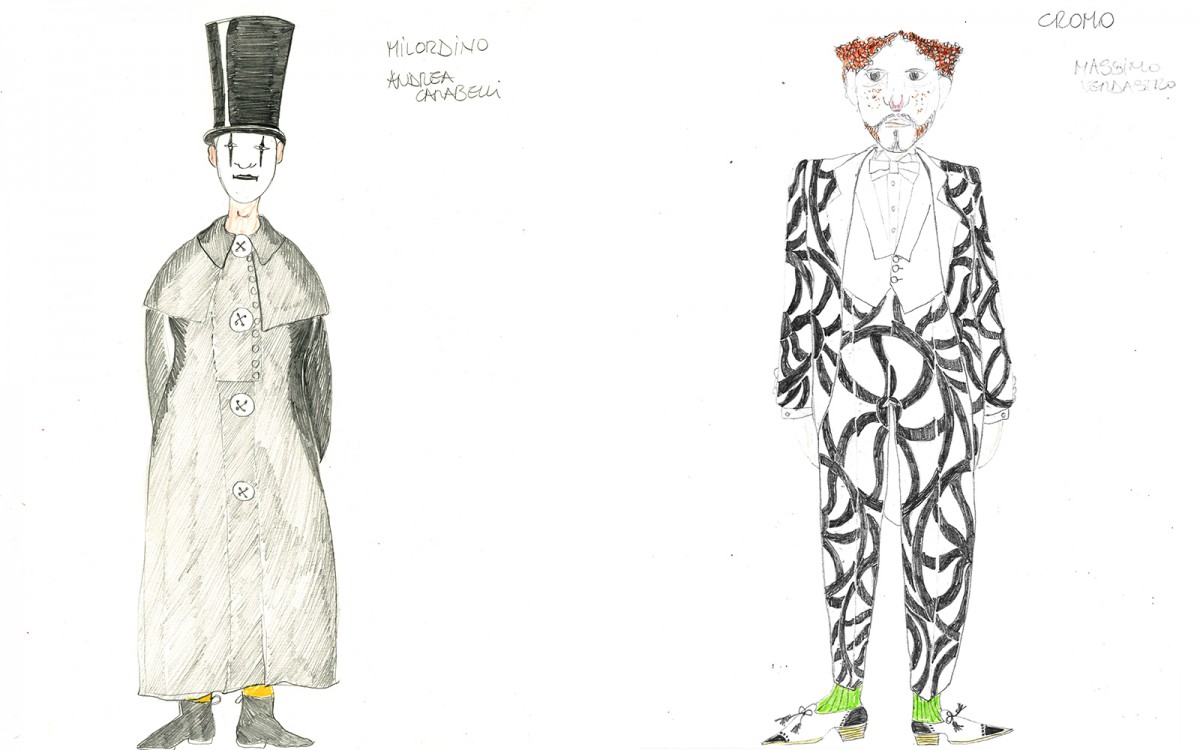 MILORDINO
ANDREA
CARABELLI
CROMO
MASSIMO
VERDASTRO